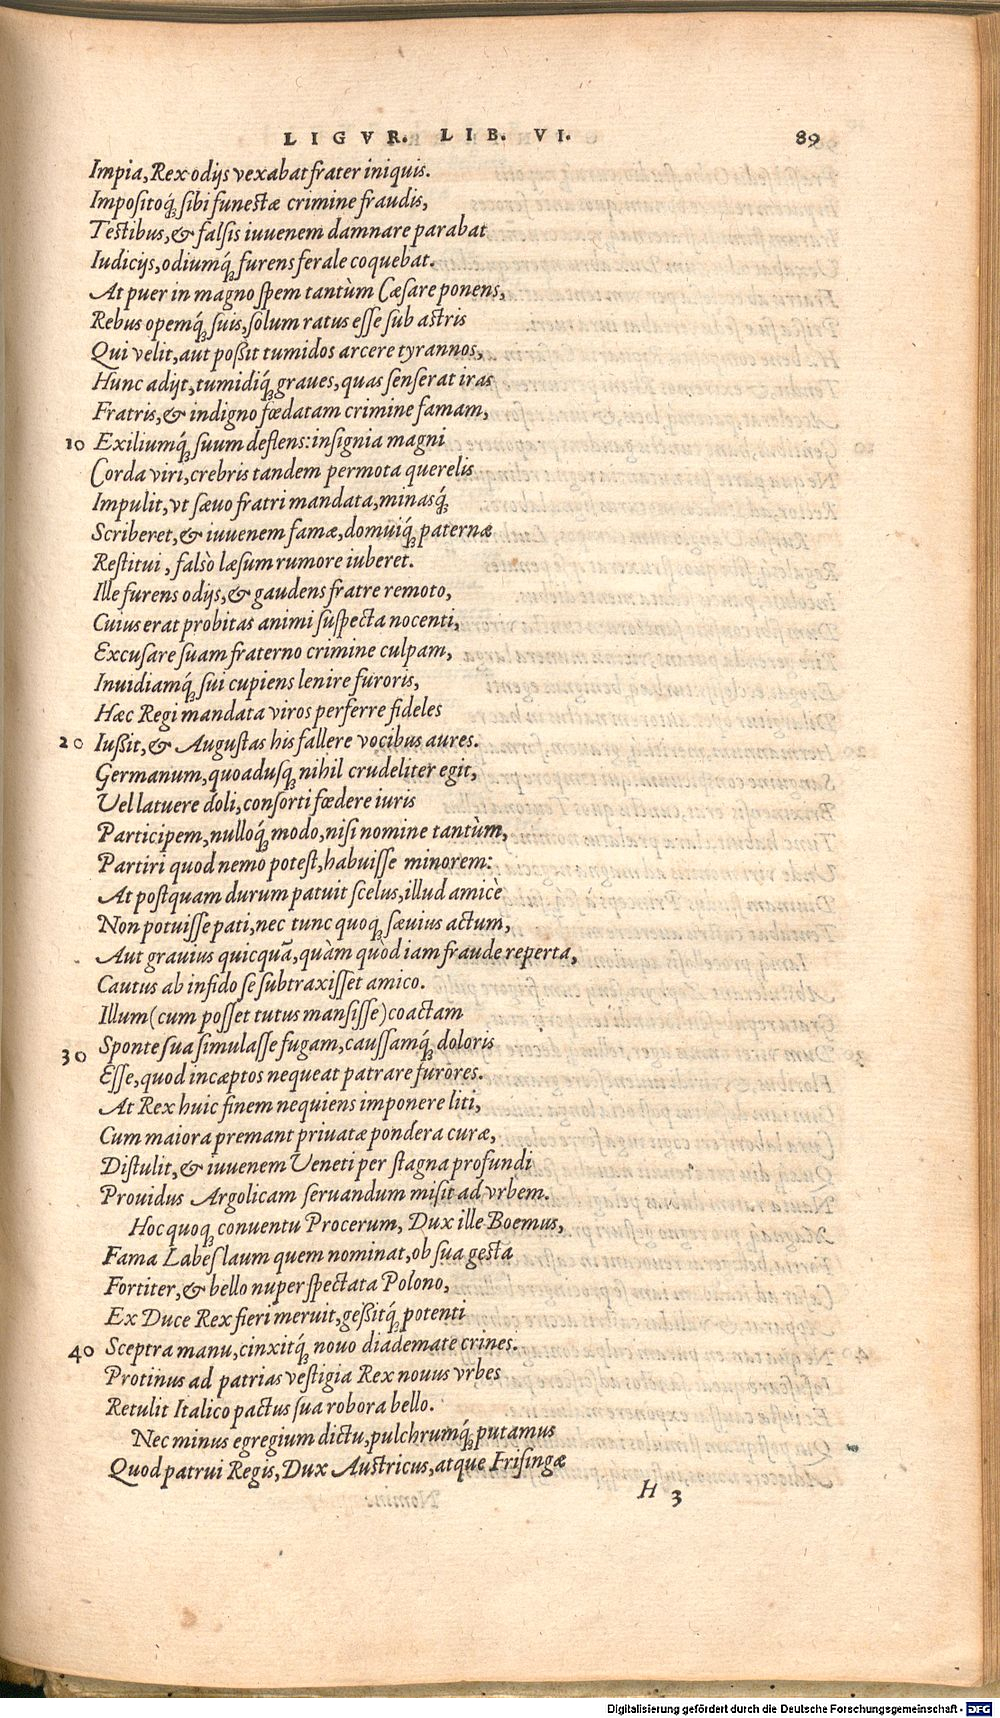 LIGVR. LIB. VI. 89
Impia, Rex odijs vexabat frater iniquis.
Impositoq́; sibi funestæ crimine fraudis,
Testibus, & falsis iuuenem damnare parabat
Iudicijs, odiumq́; furens ferale coquebat.
At puer in magno spem tantùm Cæsare ponens,
Rebus opemq́; suis, solum ratus esse sub astris
Qui velit, aut poßit tumidos arcere tyrannos,
Hunc adijt, tumidiq́; graues, quas senserat iras
Fratris, & indigno fœdatam crimine famam,
10 Exiliumq́; suum deflens: insignia magni
Corda viri, crebris tandem permota querelis
Impulit, vt sæuo fratri mandata, minasq́;
Scriberet, & iuuenem famæ, domuiq́; paternæ
Restitui, falsò læsum rumore iuberet.
Ille furens odijs, & gaudens fratre remoto,
Cuius erat probitas animi suspecta nocenti,
Excusare suam fraterno crimine culpam,
Inuidiamq́; sui cupiens lenire furoris,
Hæc Regi mandata viros perferre fideles
20 Iußit, & Augustas his fallere vocibus aures.
Germanum, quoadusq; nihil crudeliter egit,
Vel latuere doli, consorti fœdere iuris
Participem, nulloq́; modo, nisi nomine tantùm,
Partiri quod nemo potest, habuisse minorem:
At postquam durum patuit scelus, illud amicè
Non potuisse pati, nec tunc quoq; sæuius actum,
Aut grauius quicquā, quàm quòd iam fraude reperta,
Cautus ab infido se subtraxisset amico.
Illum (cum posset tutus mansisse) coactam
30 Sponte sua simulasse fugam, caussamq́; doloris
Esse, quod incæptos nequeat patrare furores.
At Rex huic finem nequiens imponere liti,
Cum maiora premant priuatæ pondera curæ,
Distulit, & iuuenem Veneti per stagna profundi
Prouidus Argolicam seruandum misit ad vrbem.
Hoc quoq; conuentu Procerum, Dux ille Boemus,
Fama Labeslaum quem nominat, ob sua gesta
Fortiter, & bello nuper spectata Polono,
Ex Duce Rex fieri meruit, geßitq́; potenti
40 Sceptra manu, cinxitq́; nouo diademate crines.
Protinus ad patrias vestigia Rex nouus vrbes
Retulit Italico pactus sua robora bello.
Nec minus egregium dictu, pulchrumq́; putamus
Quod patrui Regis, Dux Austricus, atque Frisingæ
H 3
Digitalisierung gefördert durch die Deutsche Forschungsgemeinschaft - DFG